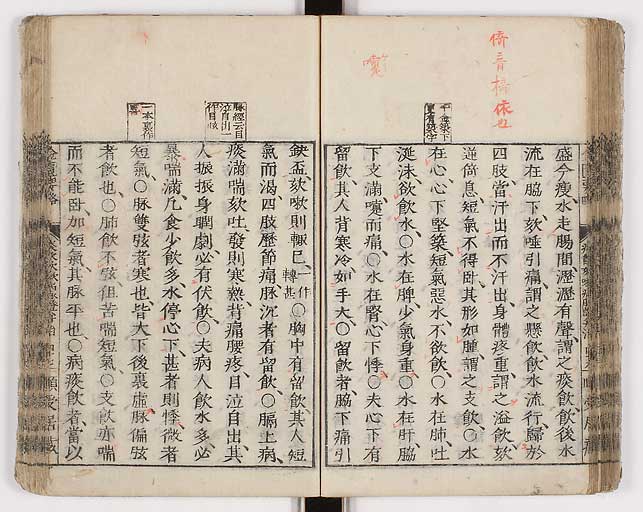 倚音椅依也
盛今瘦水走腸間瀝瀝有聲謂之痰飲飲後水
流在脇下欬唾引痛謂之懸飲飲水流行歸於
四肢當汗出而不汗出身體疼重謂之溢飲欬
逆倚息短氣不得臥其形如腫謂之支飲○水
在心心下堅築短氣惡水不欲飲○水在肺吐
涎沫欲飲水○水在脾少氣身重○水在肝脇
下支滿嚏而痛○水在腎心下悸○夫心下有
留飲其人背寒冷如手大○留飲者脇下痛引
缺盆欬嗽則輙已一作轉甚○胸中有留飲其人短
氣而渴四肢歷節痛脉沉者有留飲○膈上病
痰滿喘欬吐發則寒熱背痛腰疼目泣自出其
人振振身瞤劇必有伏飲○夫病人飲水多必
暴喘滿凡食少飲多水停心下甚者則悸微者
短氣○脉雙弦者寒也皆大下後裏虛脉偏弦
者飲也○肺飲不弦但苦喘短氣○支飲亦喘
而不能臥加短氣其脉平也○病痰飲者當以